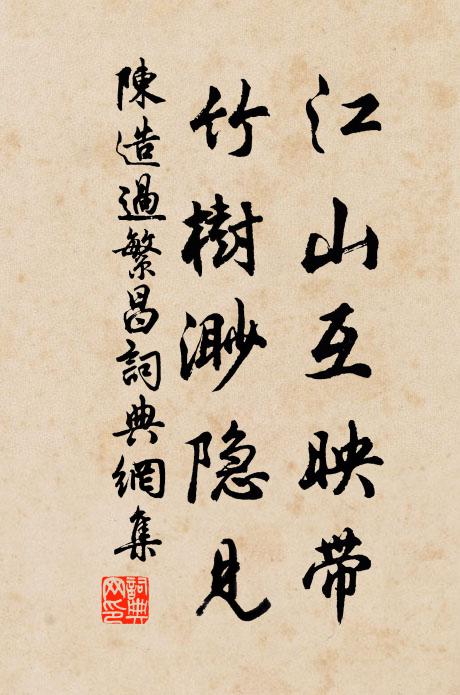 江山互映帶
竹樹渺隐見
陳造過繁昌詞典網集
詞典网印